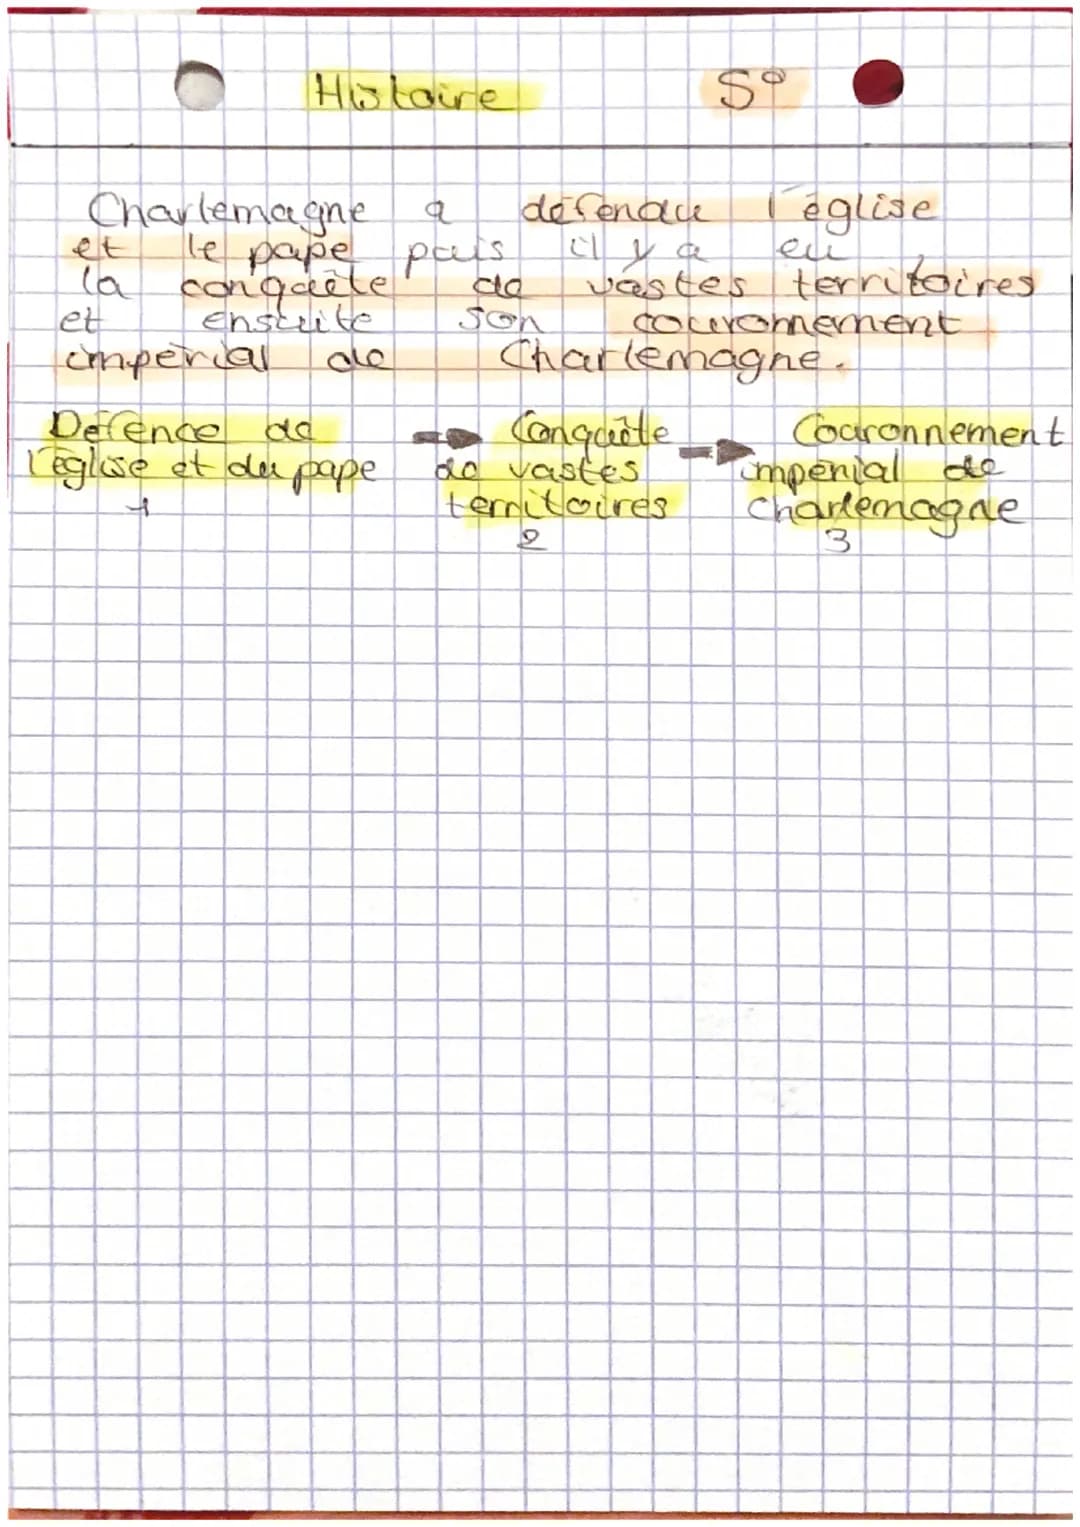 Histoire 5°
Charlemagne a défendu l'église
et le pape puis il y a eu
la conquête de vastes territoires
et ensuite son couronnement
impérial de Charlemagne.
Défence de → Conquête → Couronnement
l'église et du pape de vastes impérial de
territoires Charlemagne
1 2 3